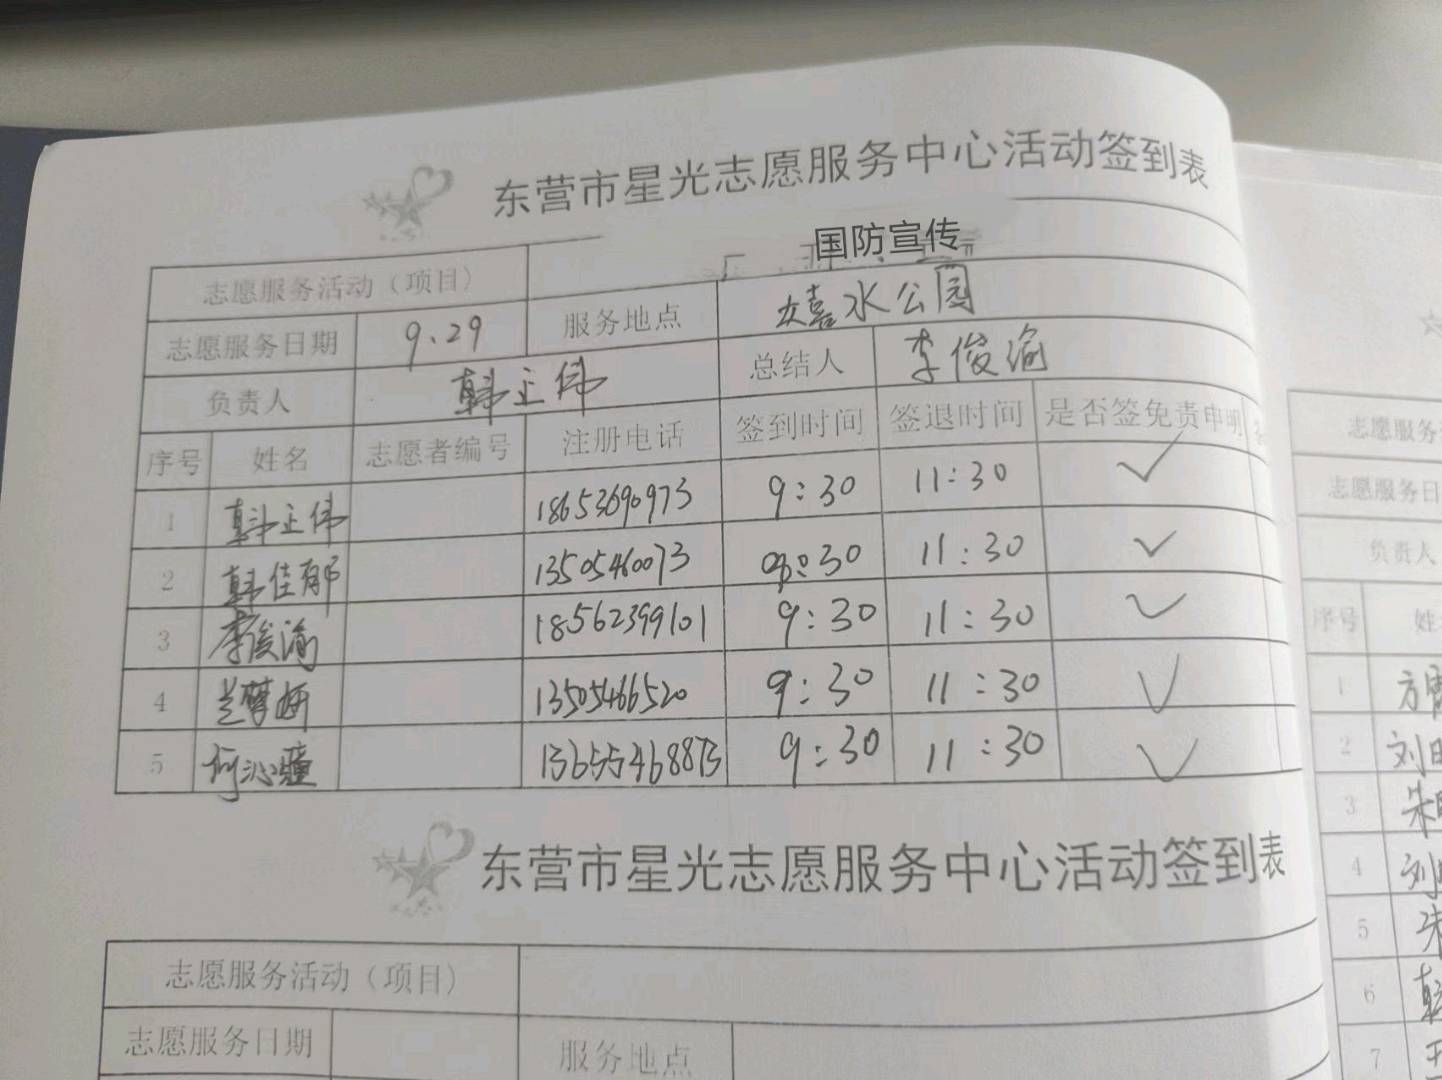 东营市星光志愿服务中心活动签到表
志愿服务活动（项目） 国防宣传
志愿服务日期 9.29 服务地点 嬉水公园
负责人 韩正伟 总结人 李俊渝
序号 姓名 志愿者编号 注册电话 签到时间 签退时间 是否签免责申明
1 韩正伟 18653690973 9:30 11:30 ✓
2 韩佳郁 13505460073 9:30 11:30 ✓
3 李俊渝 18562399101 9:30 11:30 ✓
4 兰梦妍 13505466520 9:30 11:30 ✓
5 何沁疆 13655468873 9:30 11:30 ✓
东营市星光志愿服务中心活动签到表
志愿服务活动（项目）
志愿服务日期 服务地点
志愿服务
志愿服务日
负责人
序号
1 方
2 刘
3 朱
4 刘
5 朱
6 韩
7 王